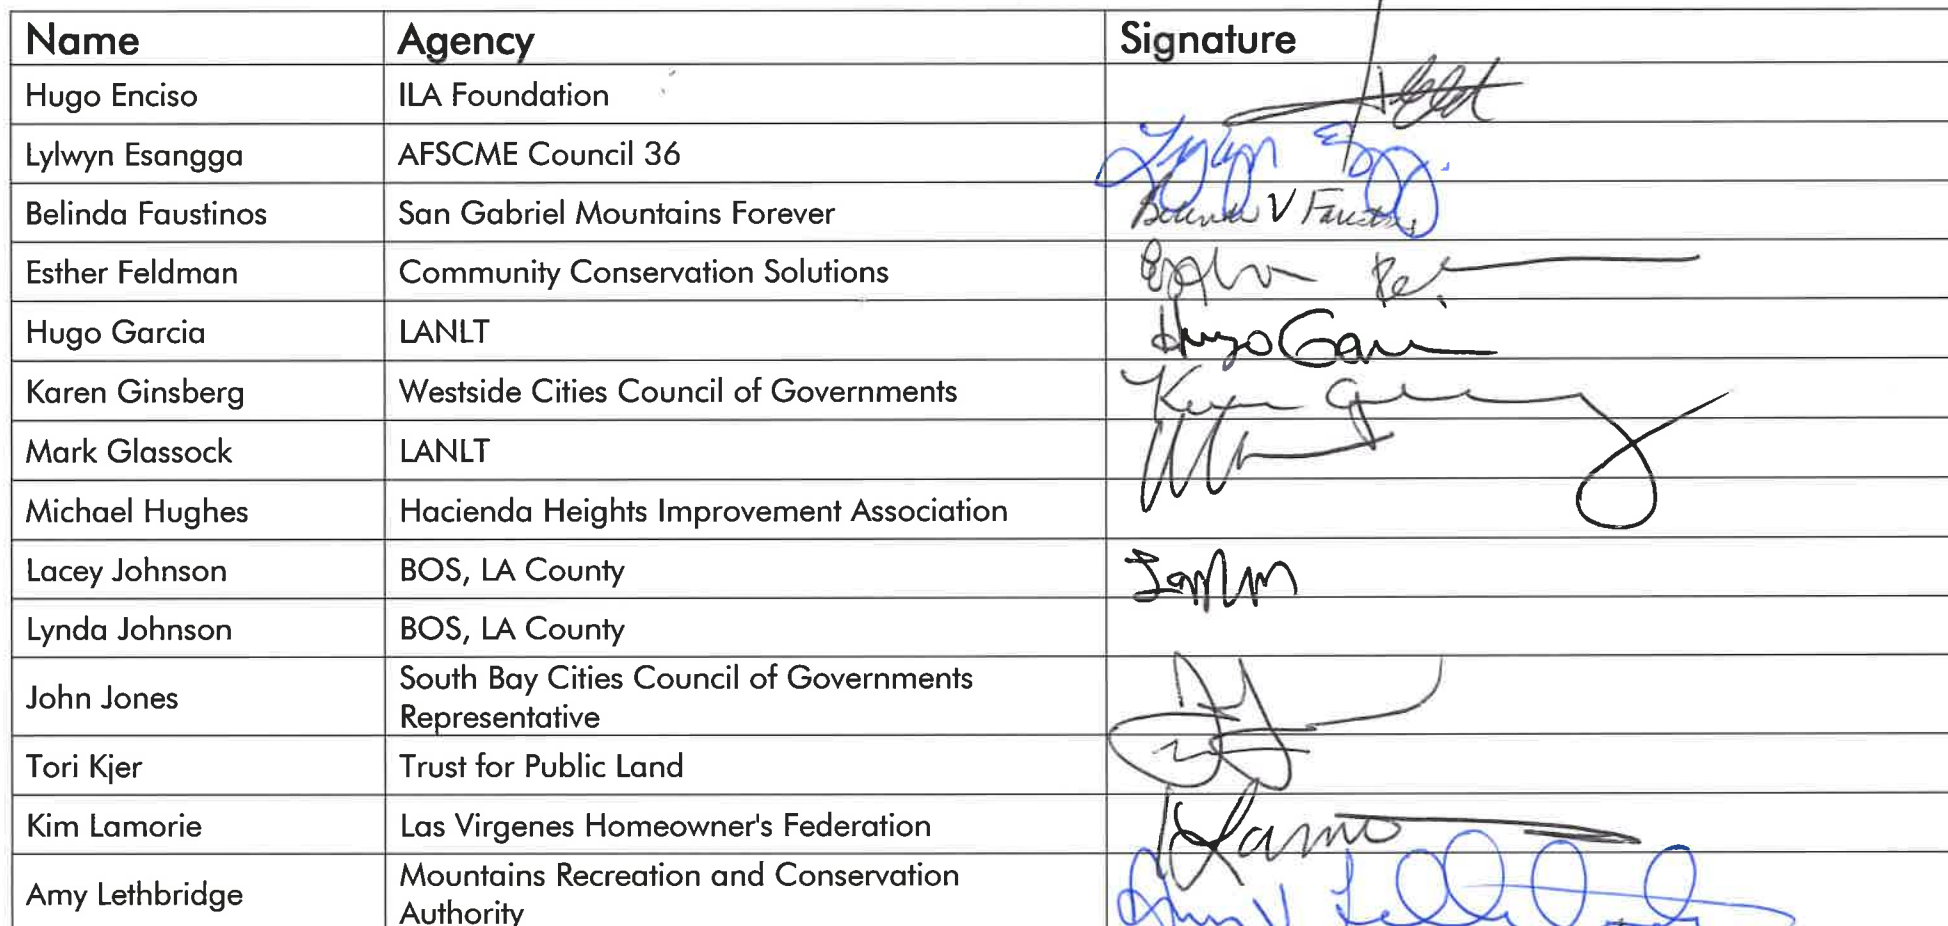 Name Agency Signature
Hugo Enciso ILA Foundation
Lylwyn Esangga AFSCME Council 36
Belinda Faustinos San Gabriel Mountains Forever Belinda V Faustinos
Esther Feldman Community Conservation Solutions
Hugo Garcia LANLT Hugo Garcia
Karen Ginsberg Westside Cities Council of Governments
Mark Glassock LANLT
Michael Hughes Hacienda Heights Improvement Association
Lacey Johnson BOS, LA County
Lynda Johnson BOS, LA County
John Jones South Bay Cities Council of Governments
Representative
Tori Kjer Trust for Public Land
Kim Lamorie Las Virgenes Homeowner's Federation
Amy Lethbridge Mountains Recreation and Conservation
Authority